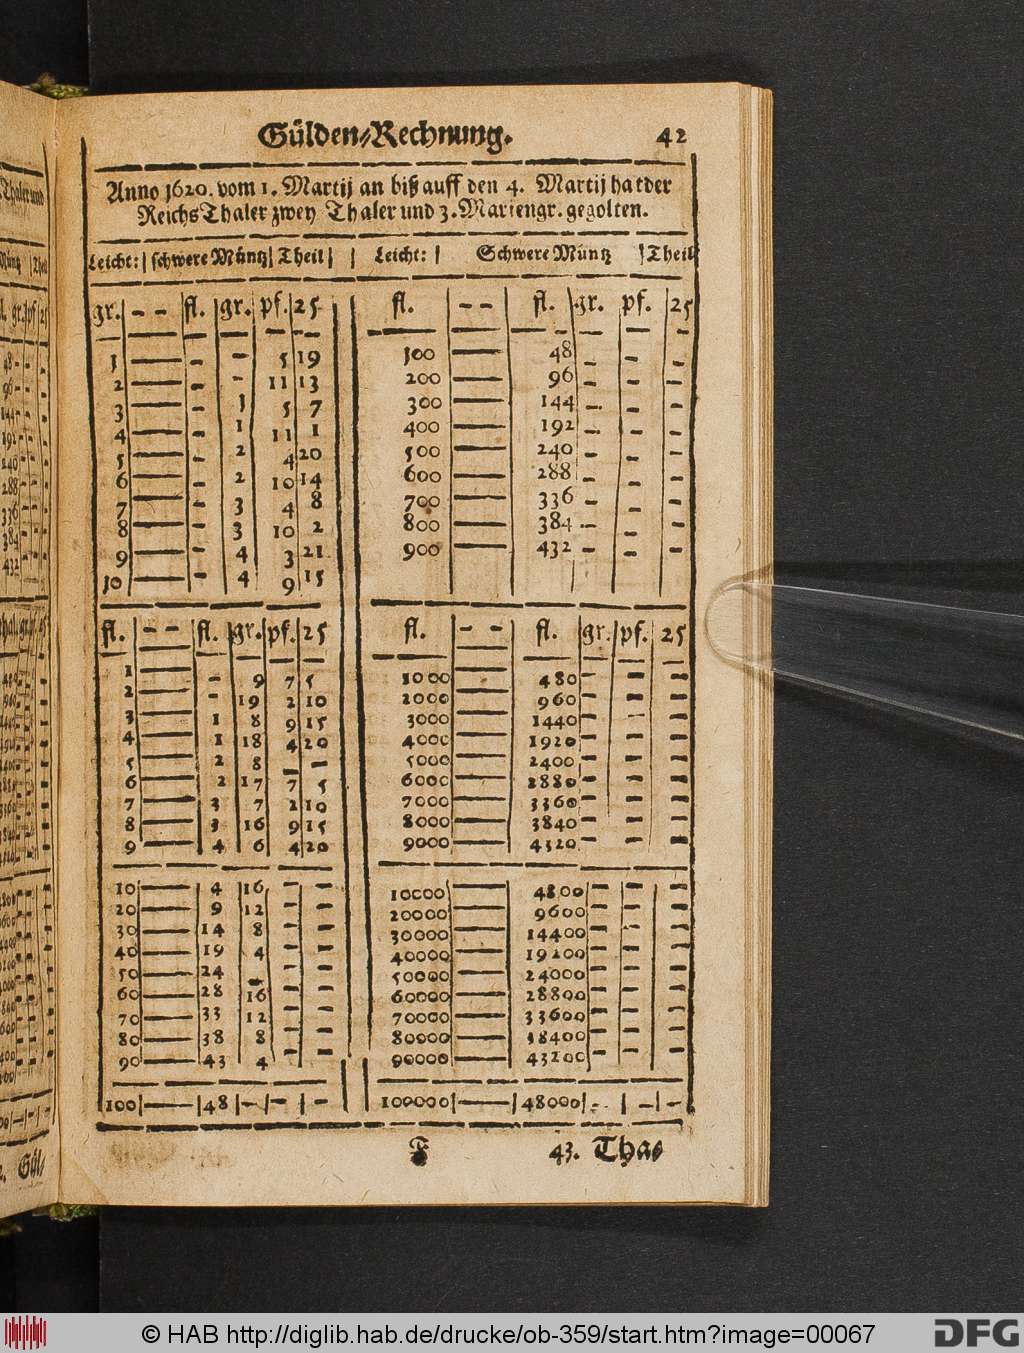 Gülden-Rechnung. 42
Anno 1620. vom 1. Martij an biß auff den 4. Martij hat der
ReichsThaler zwey Thaler und 3. Mariengr. gegolten.
Leicht: | schwere Müntz | Theil | | Leicht: | Schwere Müntz | Theil
gr. | - - | fl. | gr. | pf. | 25
1 — - - 5 19
2 — - - 11 13
3 — - 1 5 7
4 — - 1 11 1
5 — - 2 4 20
6 — - 2 10 14
7 — - 3 4 8
8 — - 3 10 2
9 — - 4 3 21
10 — - 4 9 15
fl. | - - | fl. | gr. | pf. | 25
1 — - 9 7 5
2 — - 19 2 10
3 — 1 8 9 15
4 — 1 18 4 20
5 — 2 8 - -
6 — 2 17 7 5
7 — 3 7 2 10
8 — 3 16 9 15
9 — 4 6 4 20
10 — 4 16 - -
20 — 9 12 - -
30 — 14 8 - -
40 — 19 4 - -
50 — 24 - - -
60 — 28 16 - -
70 — 33 12 - -
80 — 38 8 - -
90 — 43 4 - -
100 | — | 48 | - | - | -
fl. | - - | fl. | gr. | pf. | 25
100 — 48 - - -
200 — 96 - - -
300 — 144 - - -
400 — 192 - - -
500 — 240 - - -
600 — 288 - - -
700 — 336 - - -
800 — 384 - - -
900 — 432 - - -
fl. | - - | fl. | gr. | pf. | 25
1000 — 480 - - -
2000 — 960 - - -
3000 — 1440 - - -
4000 — 1920 - - -
5000 — 2400 - - -
6000 — 2880 - - -
7000 — 3360 - - -
8000 — 3840 - - -
9000 — 4320 - - -
10000 — 4800 - - -
20000 — 9600 - - -
30000 — 14400 - - -
40000 — 19200 - - -
50000 — 24000 - - -
60000 — 28800 - - -
70000 — 33600 - - -
80000 — 38400 - - -
90000 — 43200 - - -
100000 | — | 48000 | - | - | -
F 43. Tha-
© HAB http://diglib.hab.de/drucke/ob-359/start.htm?image=00067
DFG